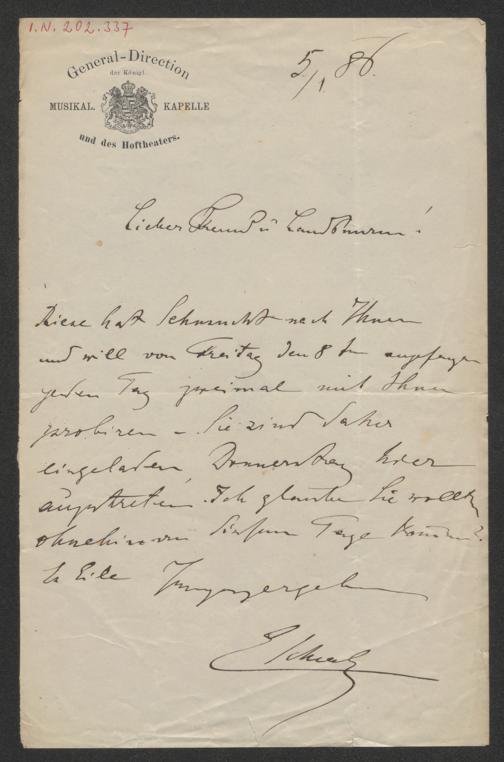 I.N. 202.337
General-Direction
der Königl.
MUSIKAL. KAPELLE
und des Hoftheaters.
5/1 86.
Lieber Freund u Landsmann!
Riese hat Sehnsucht nach Ihnen
und will von Freitag den 8 t. angefangen
jeden Tag zweimal mit Ihnen
probiren – Sie sind daher
eingeladen, Donnerstag hier
einzutreten. Ich glaube Sie wollten
ohnehin an diesem Tage kommen?
In Eile